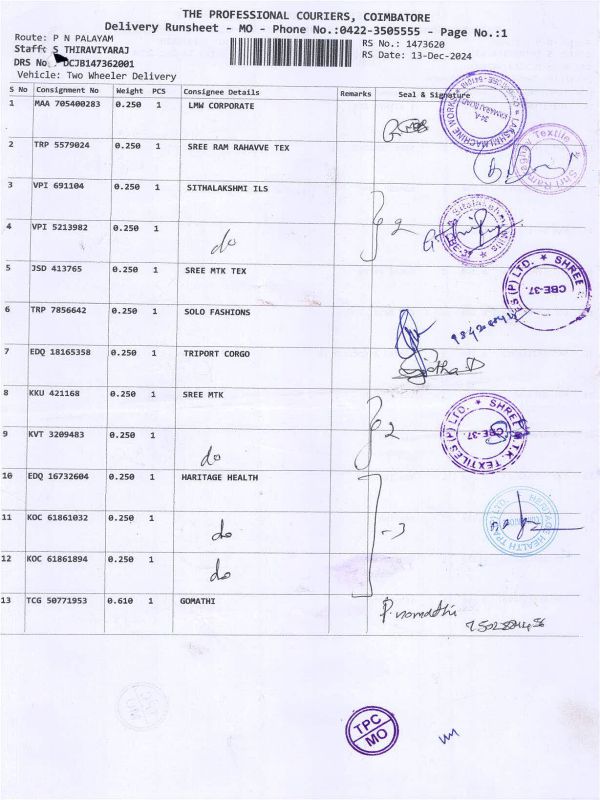 THE PROFESSIONAL COURIERS, COIMBATORE
Delivery Runsheet - MO - Phone No.:0422-3505555 - Page No.:1
Route: P N PALAYAM
RS No.: 1473620
Staff: S THIRAVIYARAJ
RS Date: 13-Dec-2024
DRS No. DCJB147362001
Vehicle: Two Wheeler Delivery
S No Consignment No Weight PCS Consignee Details Remarks Seal & Signature
1 MAA 705400283 0.250 1 LMW CORPORATE
2 TRP 5579024 0.250 1 SREE RAM RAHAVVE TEX
3 VPI 691104 0.250 1 SITHALAKSHMI ILS
4 VPI 5213982 0.250 1 do 2
5 JSD 413765 0.250 1 SREE MTK TEX
SHREE CBE-37.
6 TRP 7856642 0.250 1 SOLO FASHIONS
7 EDQ 18165358 0.250 1 TRIPORT CORGO
8 KKU 421168 0.250 1 SREE MTK
9 KVT 3209483 0.250 1 do 2
SHREE MTK TEXTILES (P) LTD. CBE-37.
10 EDQ 16732604 0.250 1 HARITAGE HEALTH
11 KOC 61861032 0.250 1 do -3
HERITAGE HEALTH TPA (P) LTD.
12 KOC 61861894 0.250 1 do
13 TCG 50771953 0.610 1 GOMATHI
TPC
MO